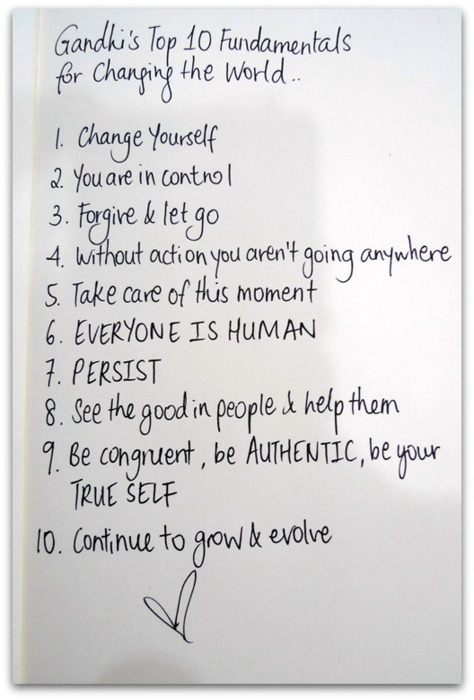 Gandhi's Top 10 Fundamentals
for Changing the World..
1. Change Yourself
2. You are in control
3. Forgive & let go
4. Without action you aren't going anywhere
5. Take care of this moment
6. EVERYONE IS HUMAN
7. PERSIST
8. See the good in people & help them
9. Be congruent, be AUTHENTIC, be your
TRUE SELF
10. Continue to grow & evolve